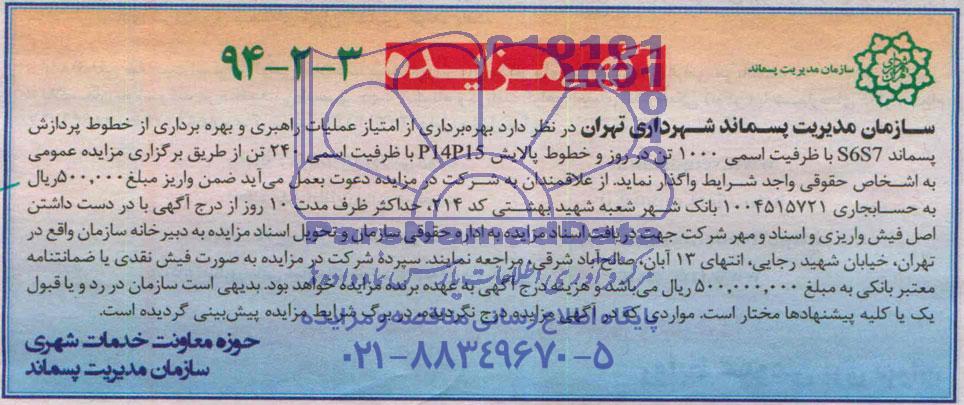 سازمان مدیریت پسماند
آگهی مزایده
۹۴-۲-۳
سازمان مدیریت پسماند شهرداری تهران در نظر دارد بهره‌برداری از امتیاز عملیات راهبری و بهره برداری از خطوط پردازش
پسماند S6S7 با ظرفیت اسمی ۱۰۰۰ تن در روز و خطوط پالایش P14P15 با ظرفیت اسمی ۲۴۰ تن از طریق برگزاری مزایده عمومی
به اشخاص حقوقی واجد شرایط واگذار نماید. از علاقمندان به شرکت در مزایده دعوت بعمل می‌آید ضمن واریز مبلغ ۵۰۰,۰۰۰ریال
به حسابجاری ۱۰۰۴۵۱۵۷۲۱ بانک شهر شعبه شهید بهشتی کد ۲۱۴، حداکثر ظرف مدت ۱۰ روز از درج آگهی با در دست داشتن
اصل فیش واریزی و اسناد و مهر شرکت جهت دریافت اسناد مزایده به اداره حقوقی سازمان و تحویل اسناد مزایده به دبیرخانه سازمان واقع در
تهران، خیابان شهید رجایی، انتهای ۱۳ آبان، صالح‌آباد شرقی، مراجعه نمایند. سپردهٔ شرکت در مزایده به صورت فیش نقدی یا ضمانتنامه
معتبر بانکی به مبلغ ۵۰۰,۰۰۰,۰۰۰ ریال می‌باشد و هزینه درج آگهی به عهده برنده مزایده خواهد بود. بدیهی است سازمان در رد و یا قبول
یک یا کلیه پیشنهادها مختار است. مواردی که در آگهی مزایده درج نگردیده، در برگ شرایط مزایده پیش‌بینی گردیده است.
حوزه معاونت خدمات شهری
سازمان مدیریت پسماند
ParsNamadData
مرکز فرآوری اطلاعات پارس نماد داده‌ها
پایگاه اطلاع رسانی مناقصه و مزایده
۰۲۱-۸۸۳۴۹۶۷۰-۵